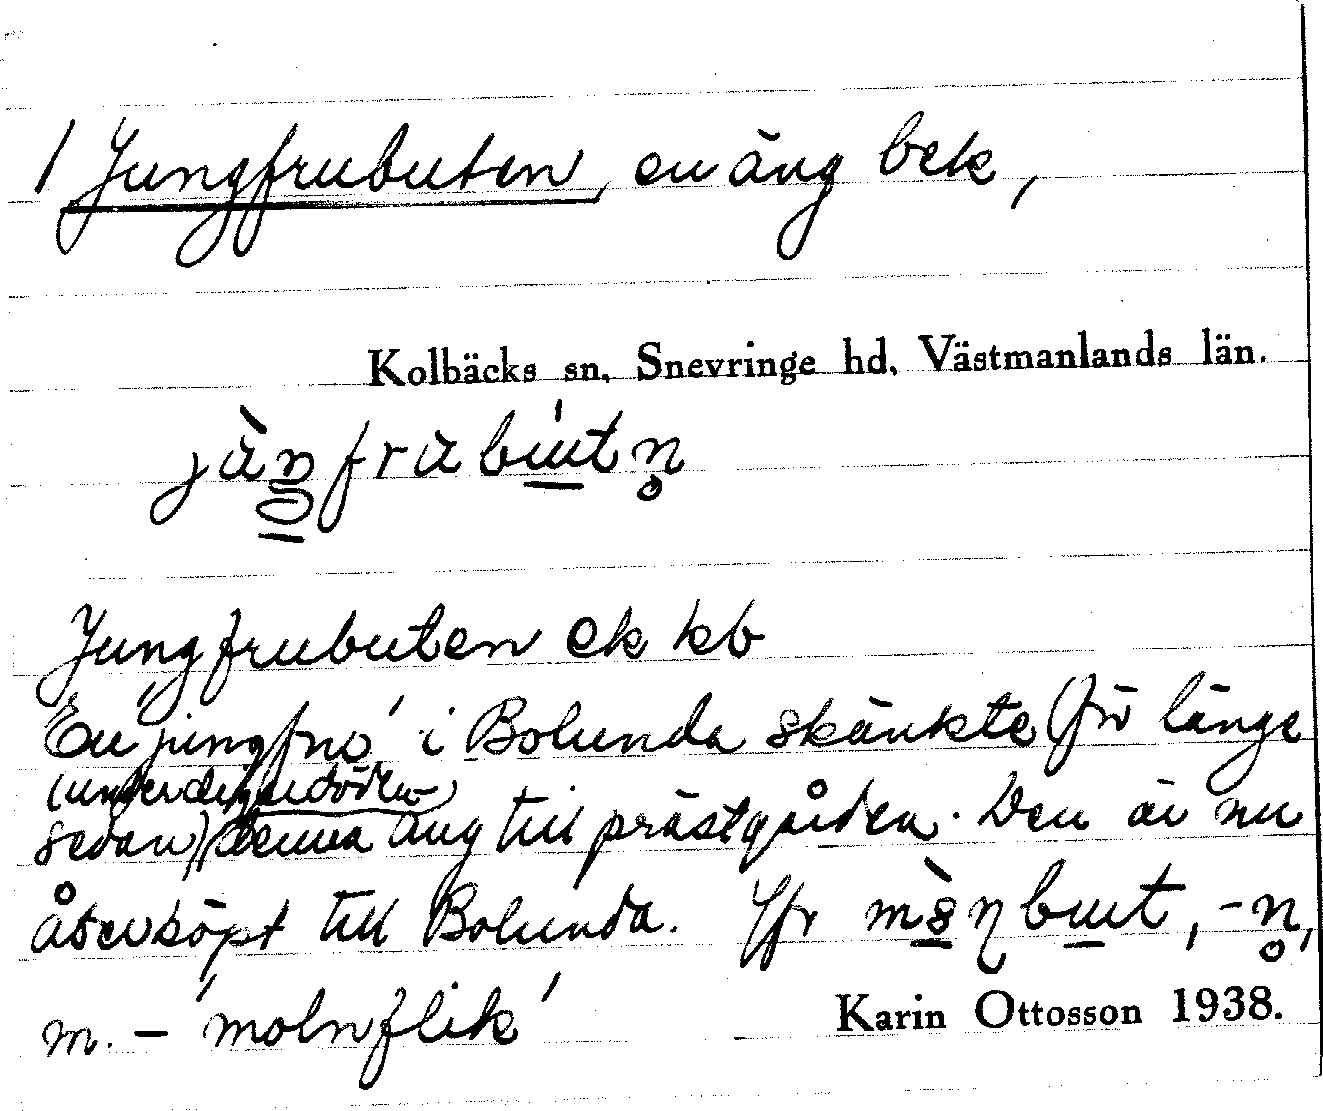 1 Jungfrubuten, en äng bek,
Kolbäcks sn, Snevringe hd, Västmanlands län.
Jungfrubuten ek kb
En 'jungfru' i Bolunda skänkte (för länge
(under digerdöden)
sedan) denna äng till prästgården. Den är nu
återköpt till Bolunda. Jfr
m. – 'molnflik'
Karin Ottosson 1938.